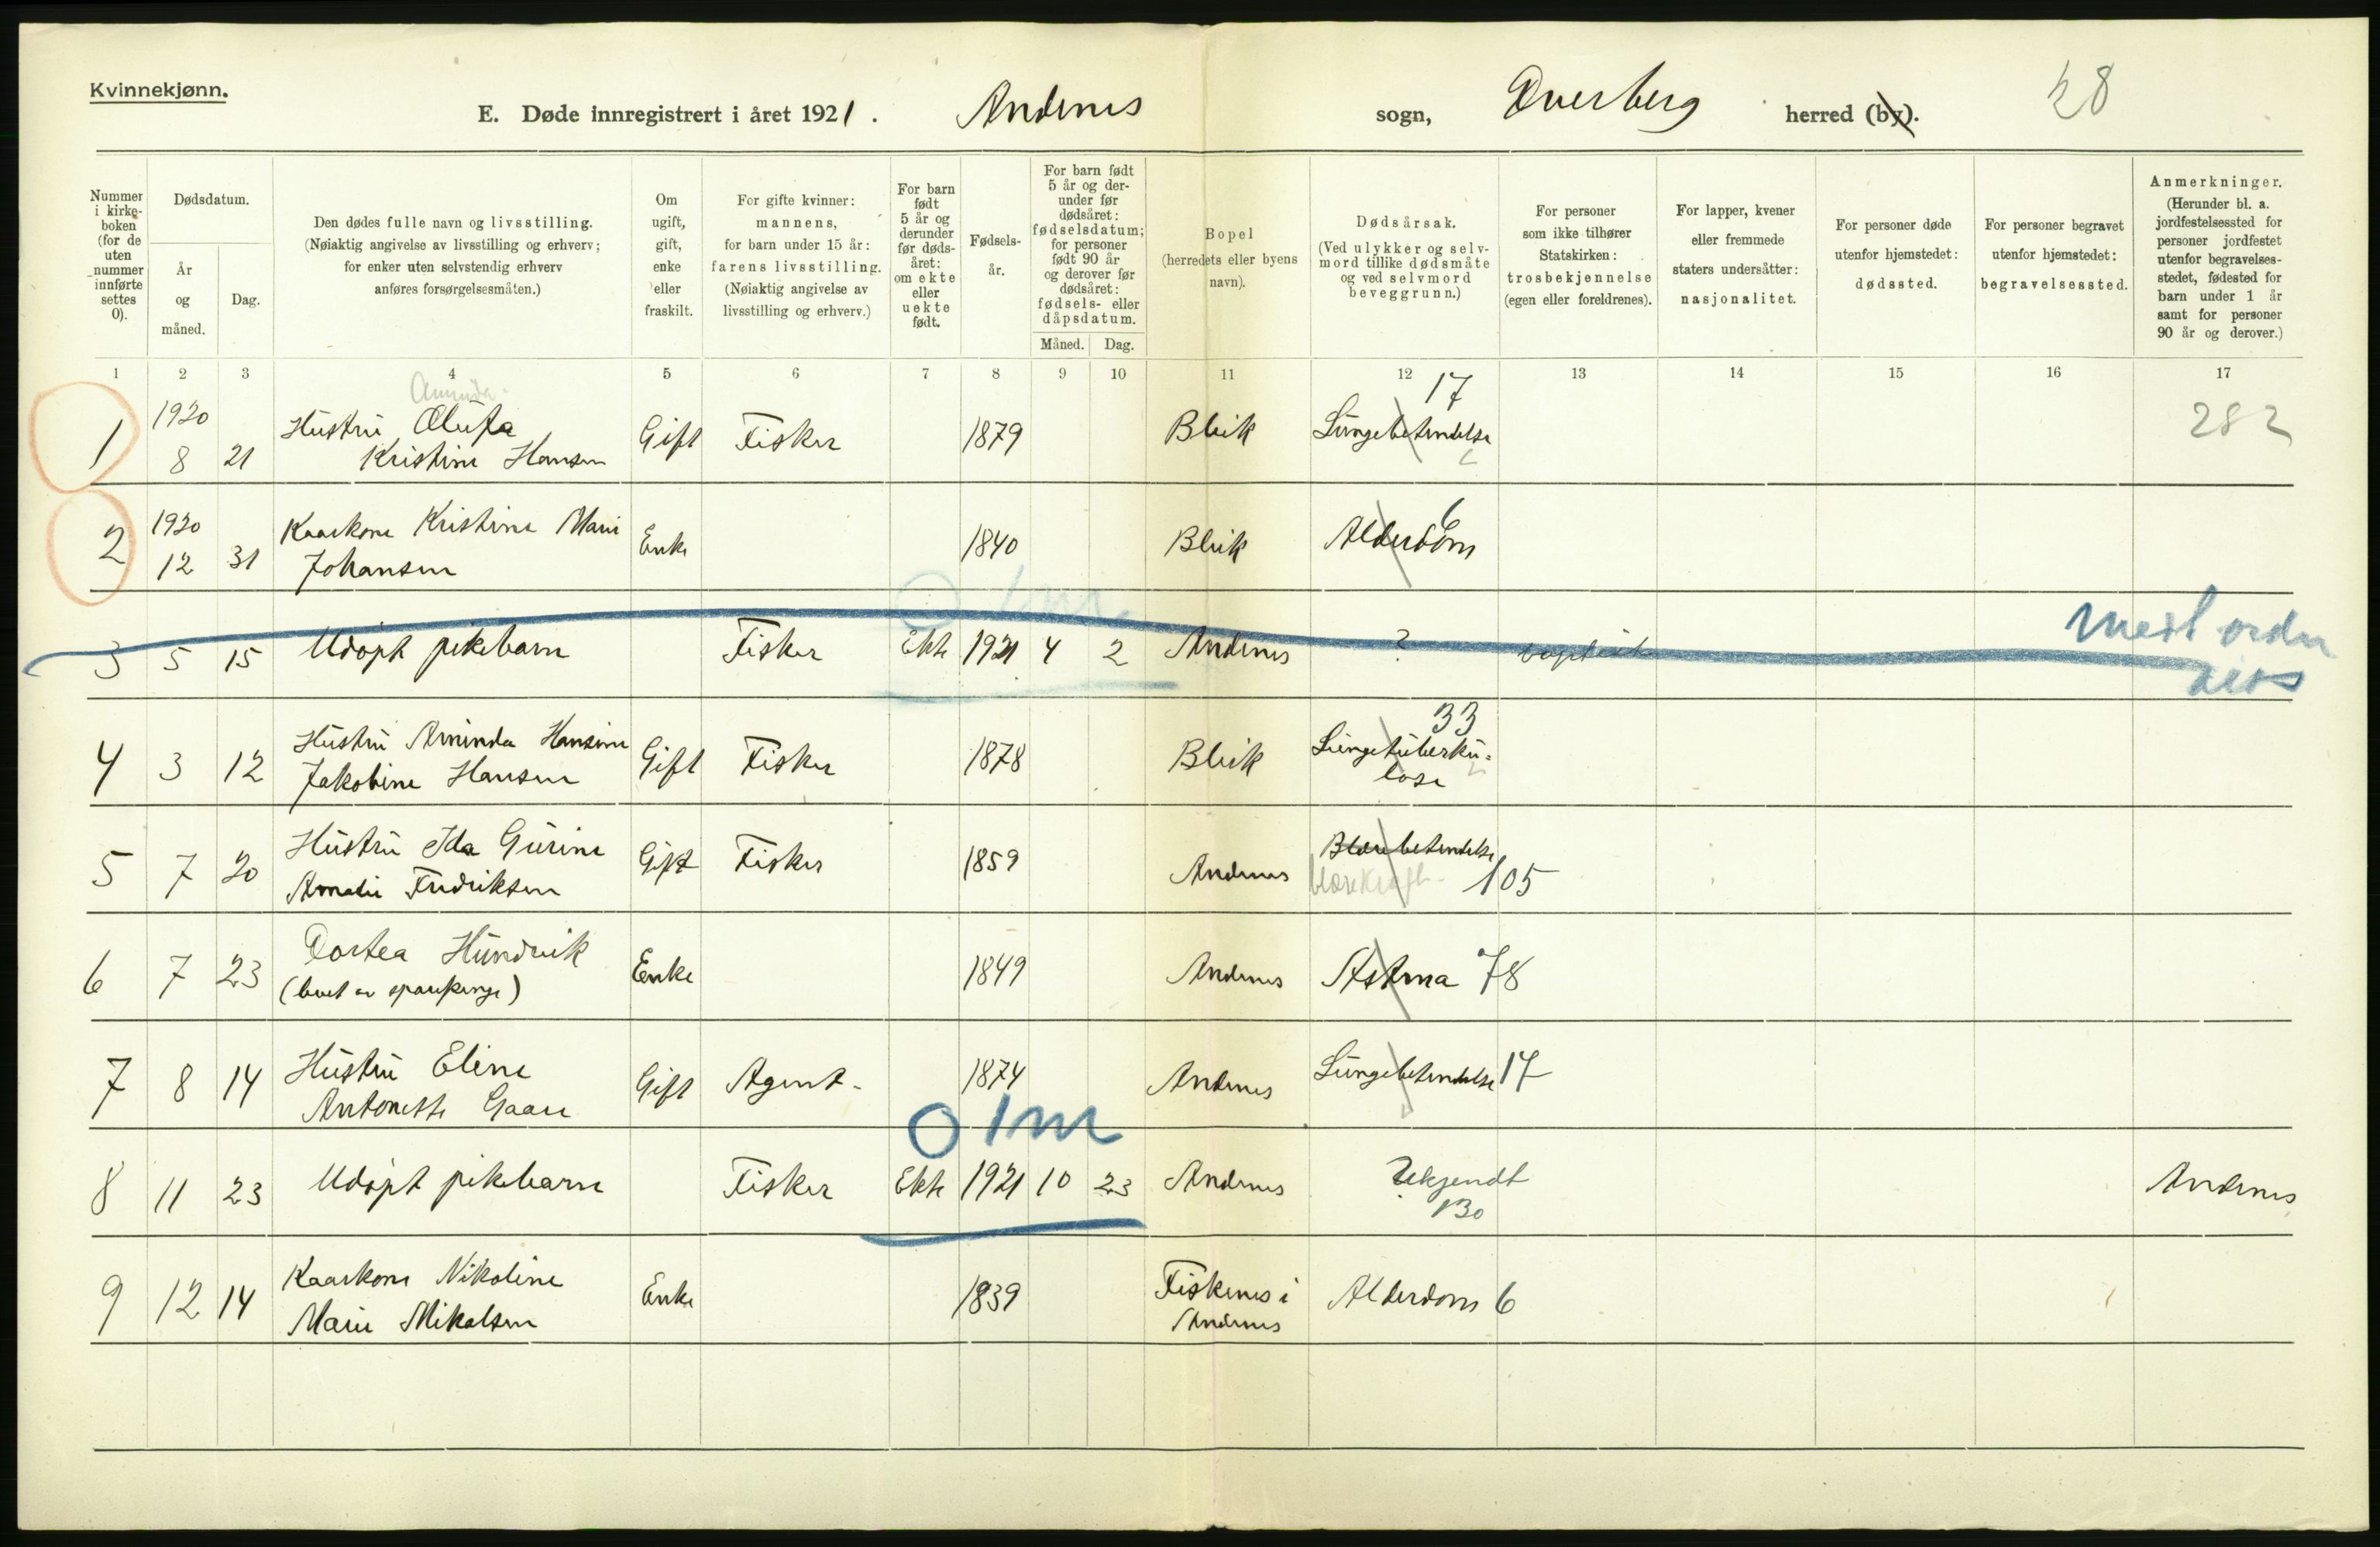 Kvinnekjønn.
E. Døde innregistrert i året 1921. Andenes sogn, Dverberg herred (by). 28
Nummer i kirkeboken (for de uten nummer innførte settes 0).
Dødsdatum.
År og måned.
Dag.
Den dødes fulle navn og livsstilling.
(Nøiaktig angivelse av livsstilling og erhverv; for enker uten selvstendig erhverv anføres forsørgelsesmåten.)
Om ugift, gift, enke eller fraskilt.
For gifte kvinner: mannens, for barn under 15 år: farens livsstilling.
(Nøiaktig angivelse av livsstilling og erhverv.)
For barn født 5 år og derunder før dødsåret: om ekte eller uekte født.
Fødselsår.
For barn født 5 år og derunder før dødsåret: fødselsdatum; for personer født 90 år og derover før dødsåret: fødsels- eller dåpsdatum.
Måned. Dag.
Bopel
(herredets eller byens navn).
Dødsårsak.
(Ved ulykker og selvmord tillike dødsmåte og ved selvmord beveggrunn.)
For personer som ikke tilhører Statskirken: trosbekjennelse (egen eller foreldrenes).
For lapper, kvener eller fremmede staters undersåtter: nasjonalitet.
For personer døde utenfor hjemstedet: dødssted.
For personer begravet utenfor hjemstedet: begravelsessted.
Anmerkninger.
(Herunder bl. a. jordfestelsessted for personer jordfestet utenfor begravelsesstedet, fødested for barn under 1 år samt for personer 90 år og derover.)
1 2 3 4 5 6 7 8 9 10 11 12 13 14 15 16 17
Aminda 17
1 1920 8 21 Hustru Olufa Kristine Hansen Gift Fisker 1879 Bleik Lungebetendelse 282
2 1920 12 31 Kaarkone Kristine Marie Johansen Enke 1840 Bleik Alderdom 6
O 1m
3 5 15 Udøpt pikebarn Fisker Ekte 1921 4 2 Andenes ? baptist
4 3 12 Hustru Aminda Hansine Jakobine Hansen Gift Fisker 1878 Bleik Lungetuberkulose 33
5 7 20 Hustru Ida Gurine Amalie Fredriksen Gift Fisker 1859 Andenes Blærebetendelse blærekræft 105
6 7 23 Dortea Hundvik (levet av sparepenge) Enke 1849 Andenes Astma 78
7 8 14 Hustru Eline Antonette Gaare Gift Agent 1874 Andenes Lungebetendelse 17
O 1m
8 11 23 Udøpt pikebarn Fisker Ekte 1921 10 23 Andenes Ukjendt 130 Andenes
9 12 14 Kaarkone Nikoline Marie Mikalsen Enke 1839 Fiskenes i Andenes Alderdom 6